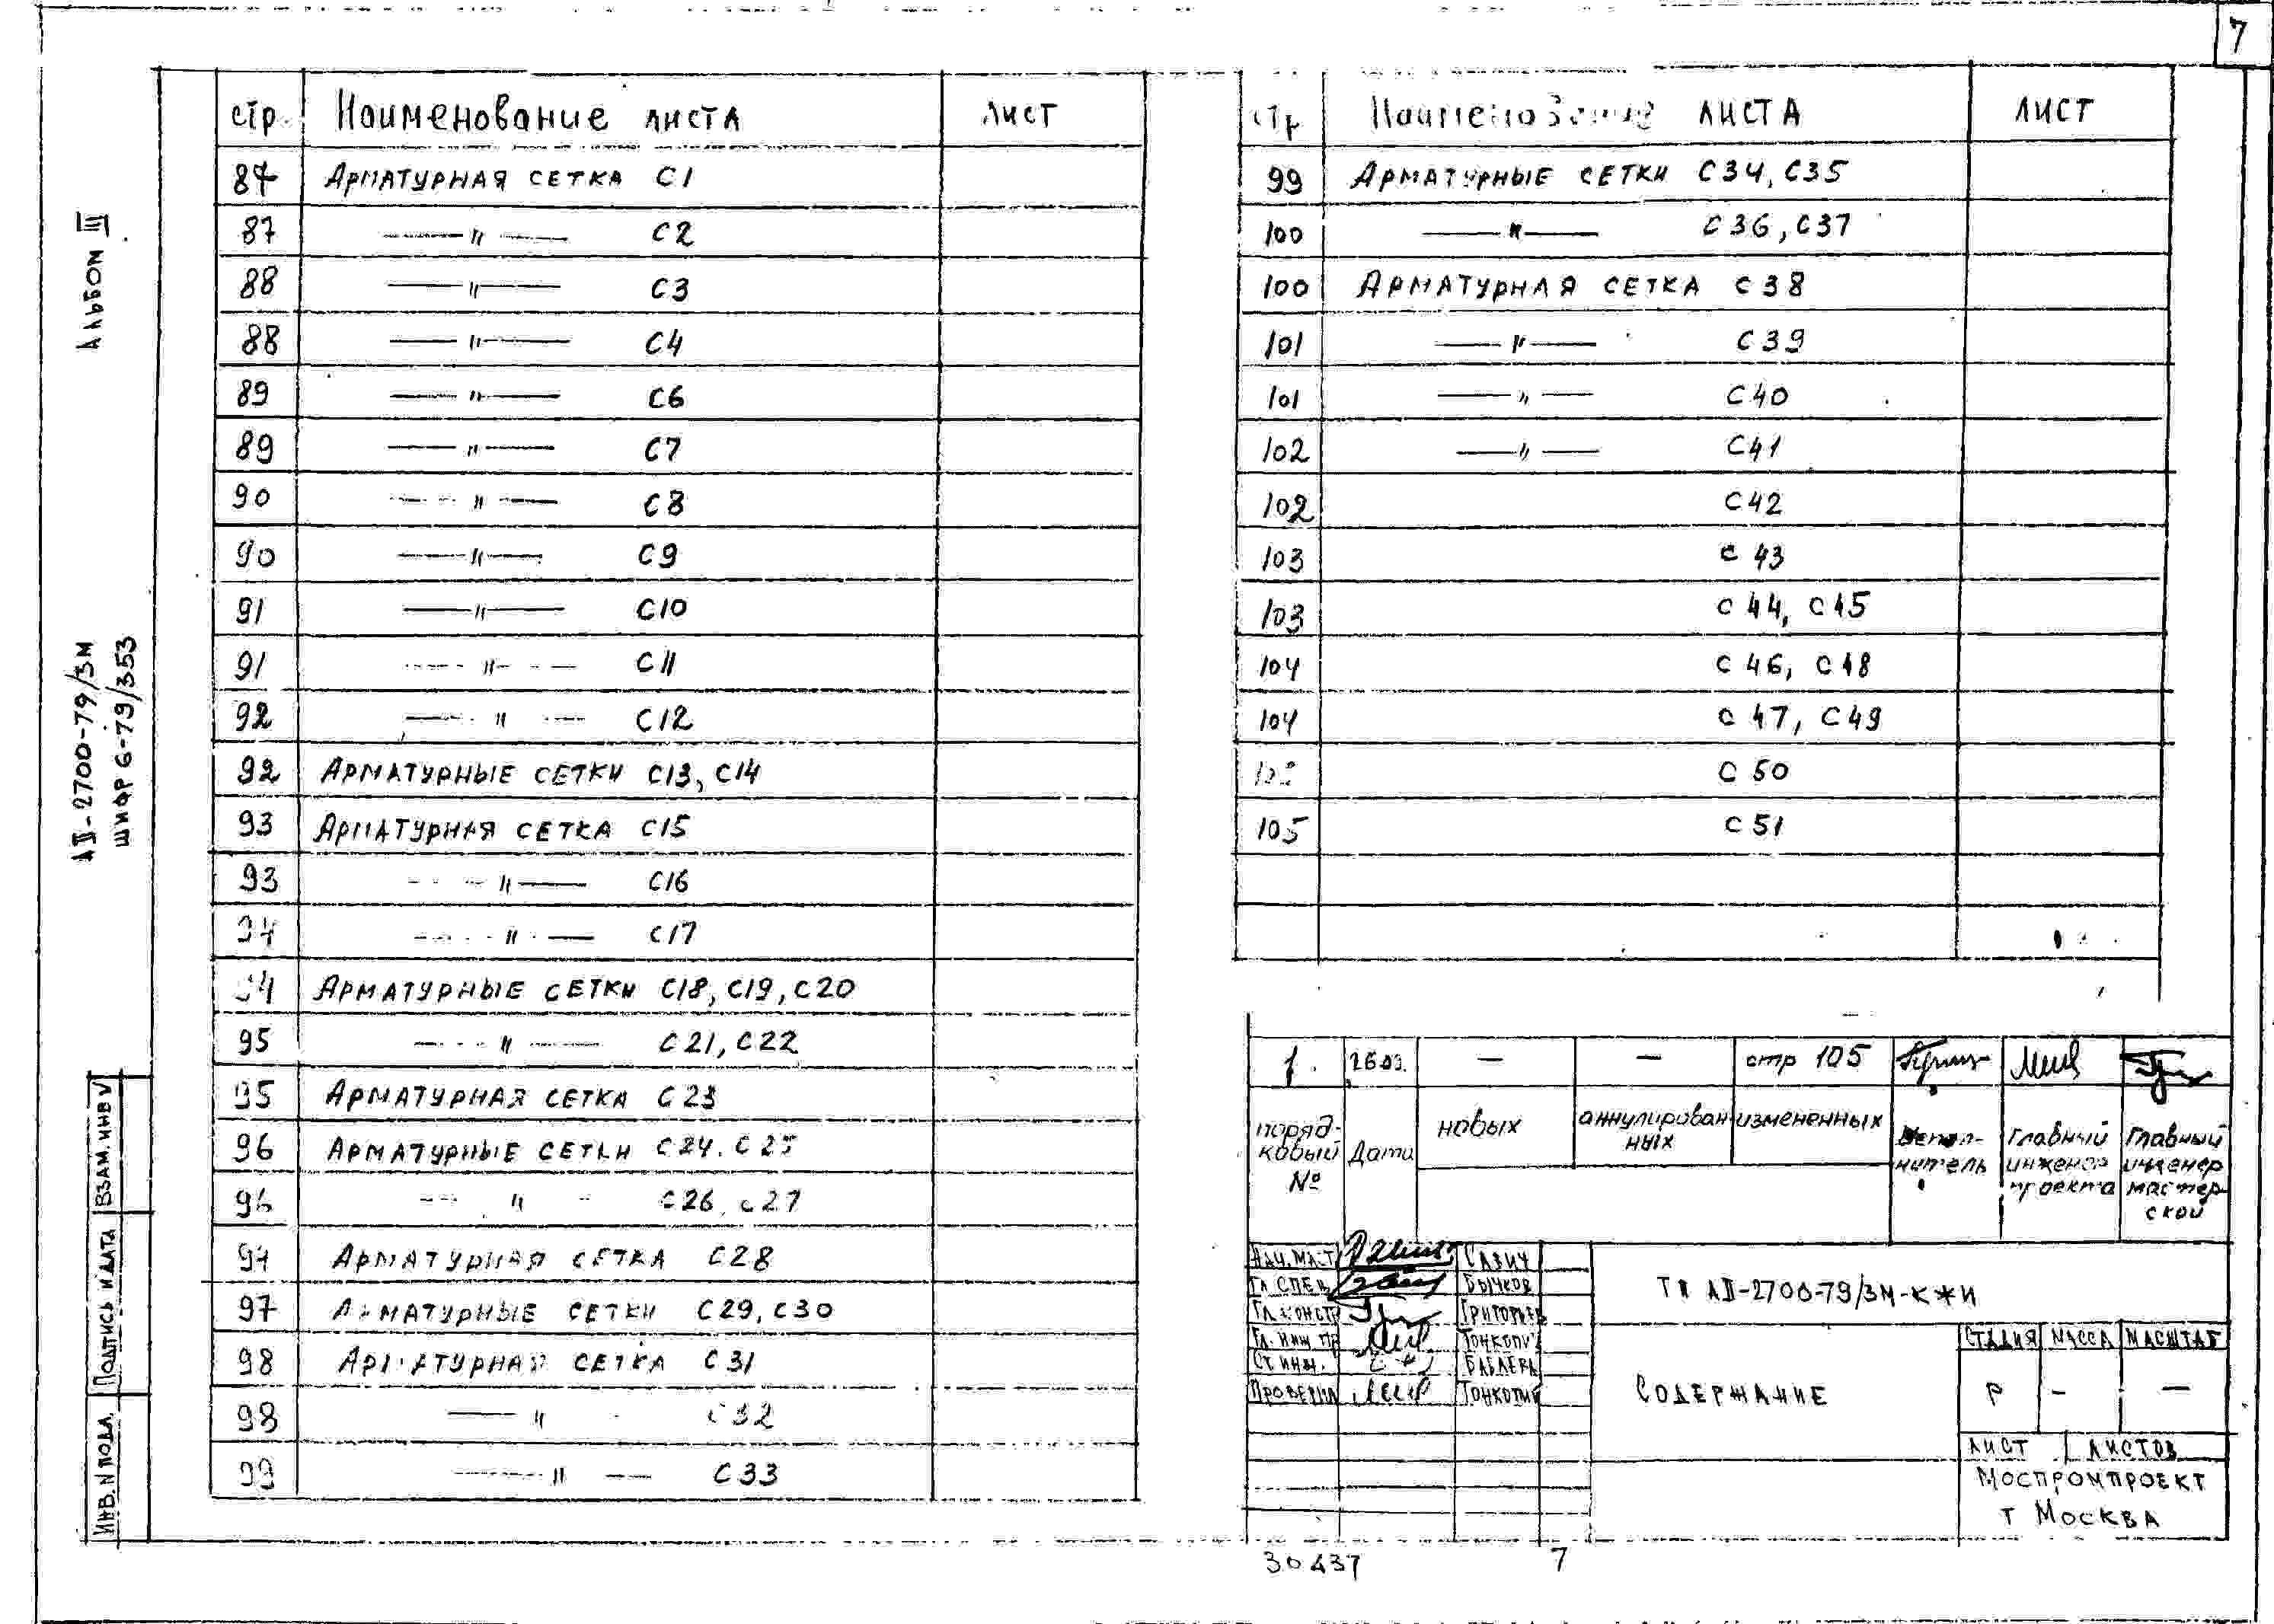 7
Альбом III
АII-2700-79/3М
шифр 6-79/353
ИНВ. N ПОДЛ. ПОДПИСЬ И ДАТА ВЗАМ. ИНВ N
стр. Наименование листа лист
87 Арматурная сетка С1
87 —"— С2
88 —"— С3
88 —"— С4
89 —"— С6
89 —"— С7
90 —"— С8
90 —"— С9
91 —"— С10
91 —"— С11
92 —"— С12
92 Арматурные сетки С13, С14
93 Арматурная сетка С15
93 —"— С16
94 —"— С17
94 Арматурные сетки С18, С19, С20
95 —"— С21, С22
95 Арматурная сетка С23
96 Арматурные сетки С24, С25
96 —"— С26, С27
97 Арматурная сетка С28
97 Арматурные сетки С29, С30
98 Арматурная сетка С31
98 —"— С32
99 —"— С33
стр Наименование листа лист
99 Арматурные сетки С34, С35
100 —"— С36, С37
100 Арматурная сетка С38
101 —"— С39
101 —"— С40
102 —"— С41
102 С42
103 С 43
103 С 44, С 45
104 С 46, С 48
104 С 47, С 49
С 50
105 С 51
1. — — стр 105
порядковый № Дата новых аннулированных измененных Исполнитель Главный инженер проекта Главный инженер мастерской
Нач. маст. Савич
Гл. спец. Бычков
Гл. констр Григорьев
Гл. инж. пр
Ст. инж.
Проверил
ТП АII-2700-79/3М-КЖИ
Содержание
Стадия Масса Масштаб
Р — —
Лист Листов
Моспромпроект
г Москва
30437 7